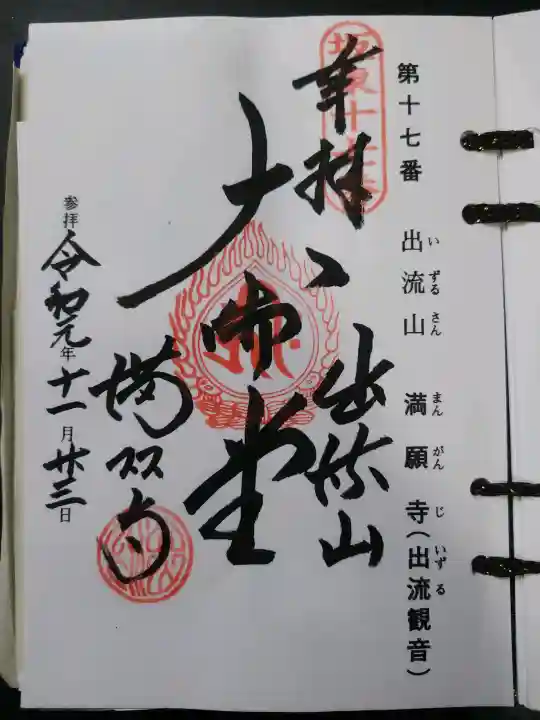 第十七番 出流山 満願寺(出流観音)
いずるさん まんがんじ いずる
坂東十七番
奉拝 出流山
大御堂
満願寺
参拝 令和元年十一月廿三日